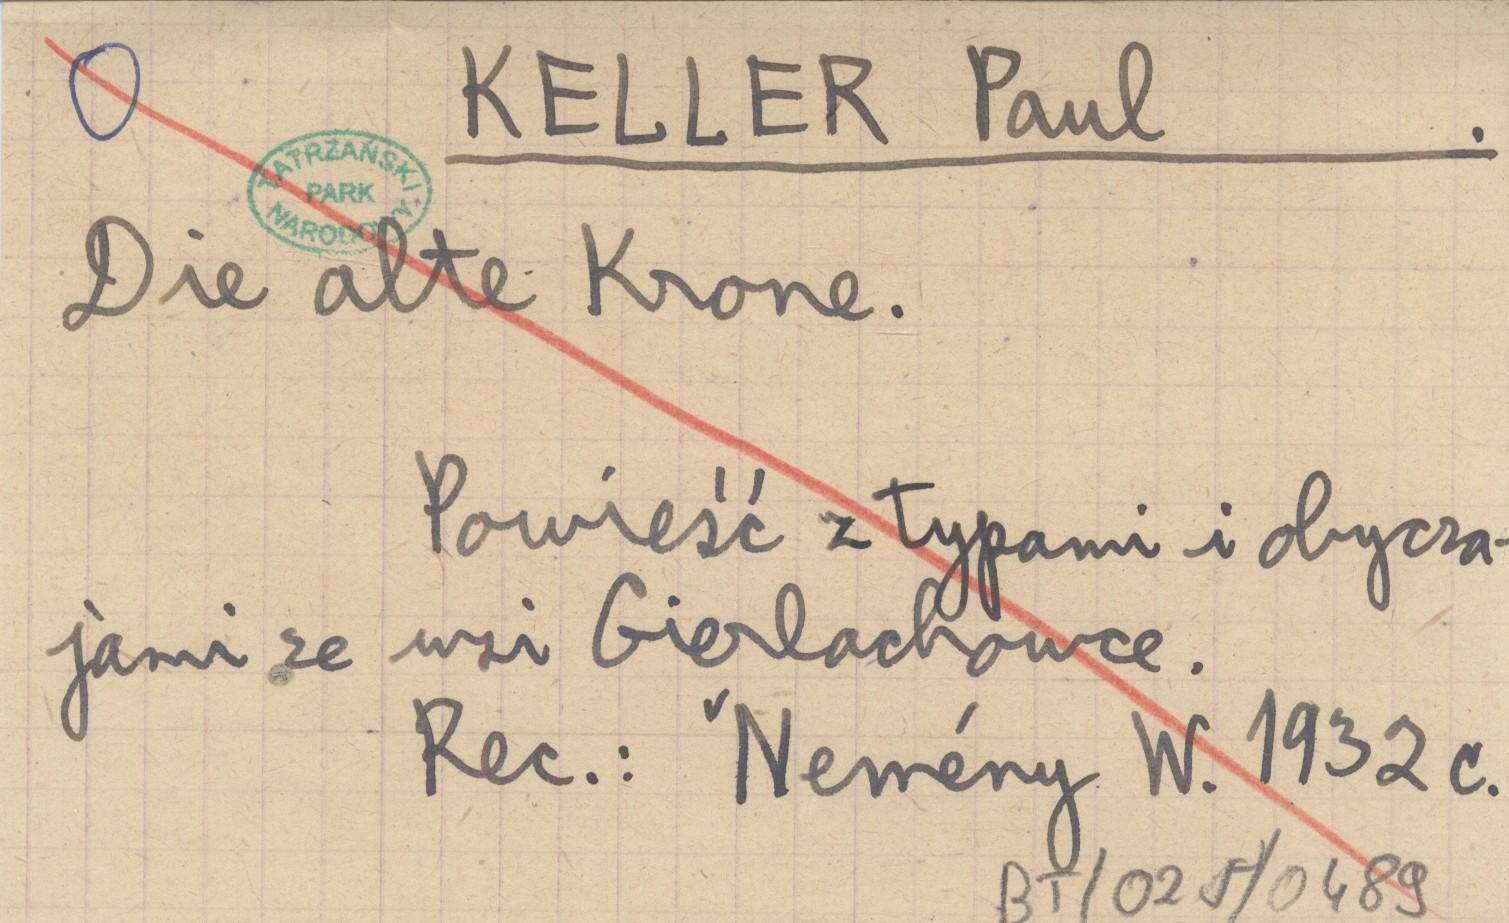 KELLER Paul .
TATRZAŃSKI
PARK
NARODOWY
Die alte Krone.
Powieść z typami i obycza-
jami ze wsi Gierlachowce.
Rec.: Nemény W. 1932 c.
BT/025/0489